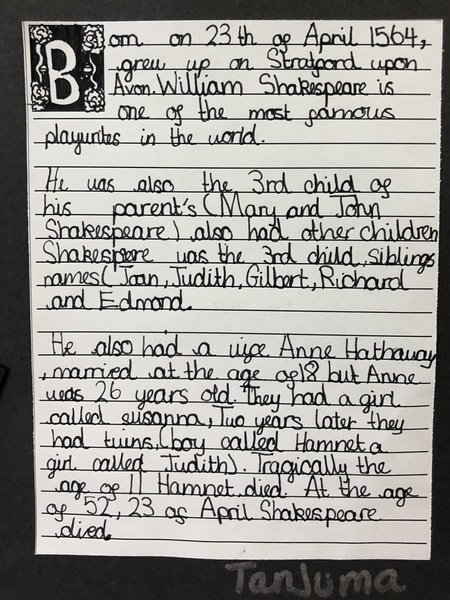 Born on 23th of April 1564,
grew up on Stratford upon
Avon. William Shakespeare is
one of the most famous
playwrites in the world.
He was also the 3rd child of
his parent's (Mary and John
Shakespeare) also had other children
Shakespere was the 3rd child, siblings
names (Joan, Judith, Gilbert, Richard
and Edmond.
He also had a wife Anne Hathaway
, married at the age of 18 but Anne
was 26 years old. They had a girl
called susanna, Two years later they
had twins, (boy called Hamnet a
girl called Judith). Tragically the
age of 11 Hamnet died. At the age
of 52, 23 of April Shakespeare
died.
TanJuma